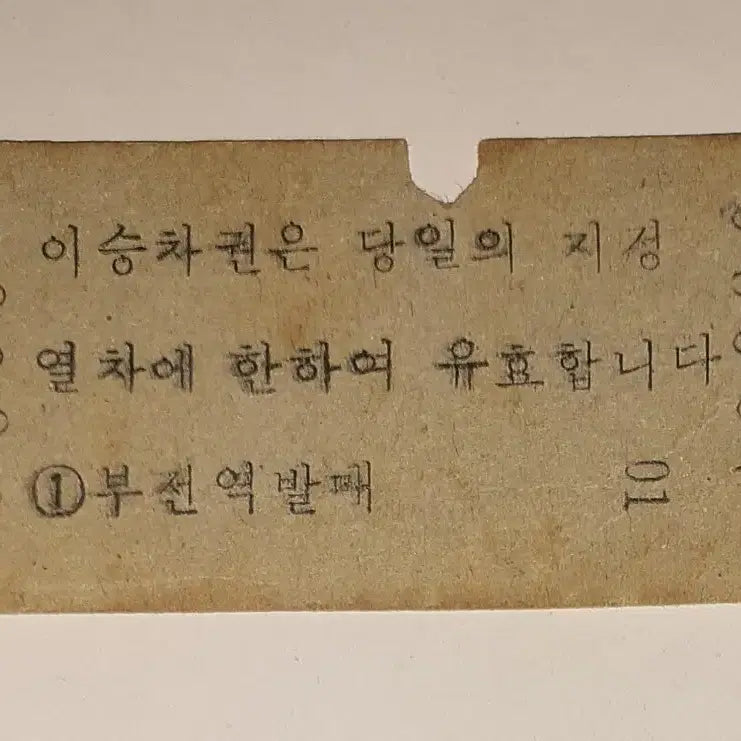 이승차권은 당일의 지성
열차에 한하여 유효합니다
①부전역발매 10